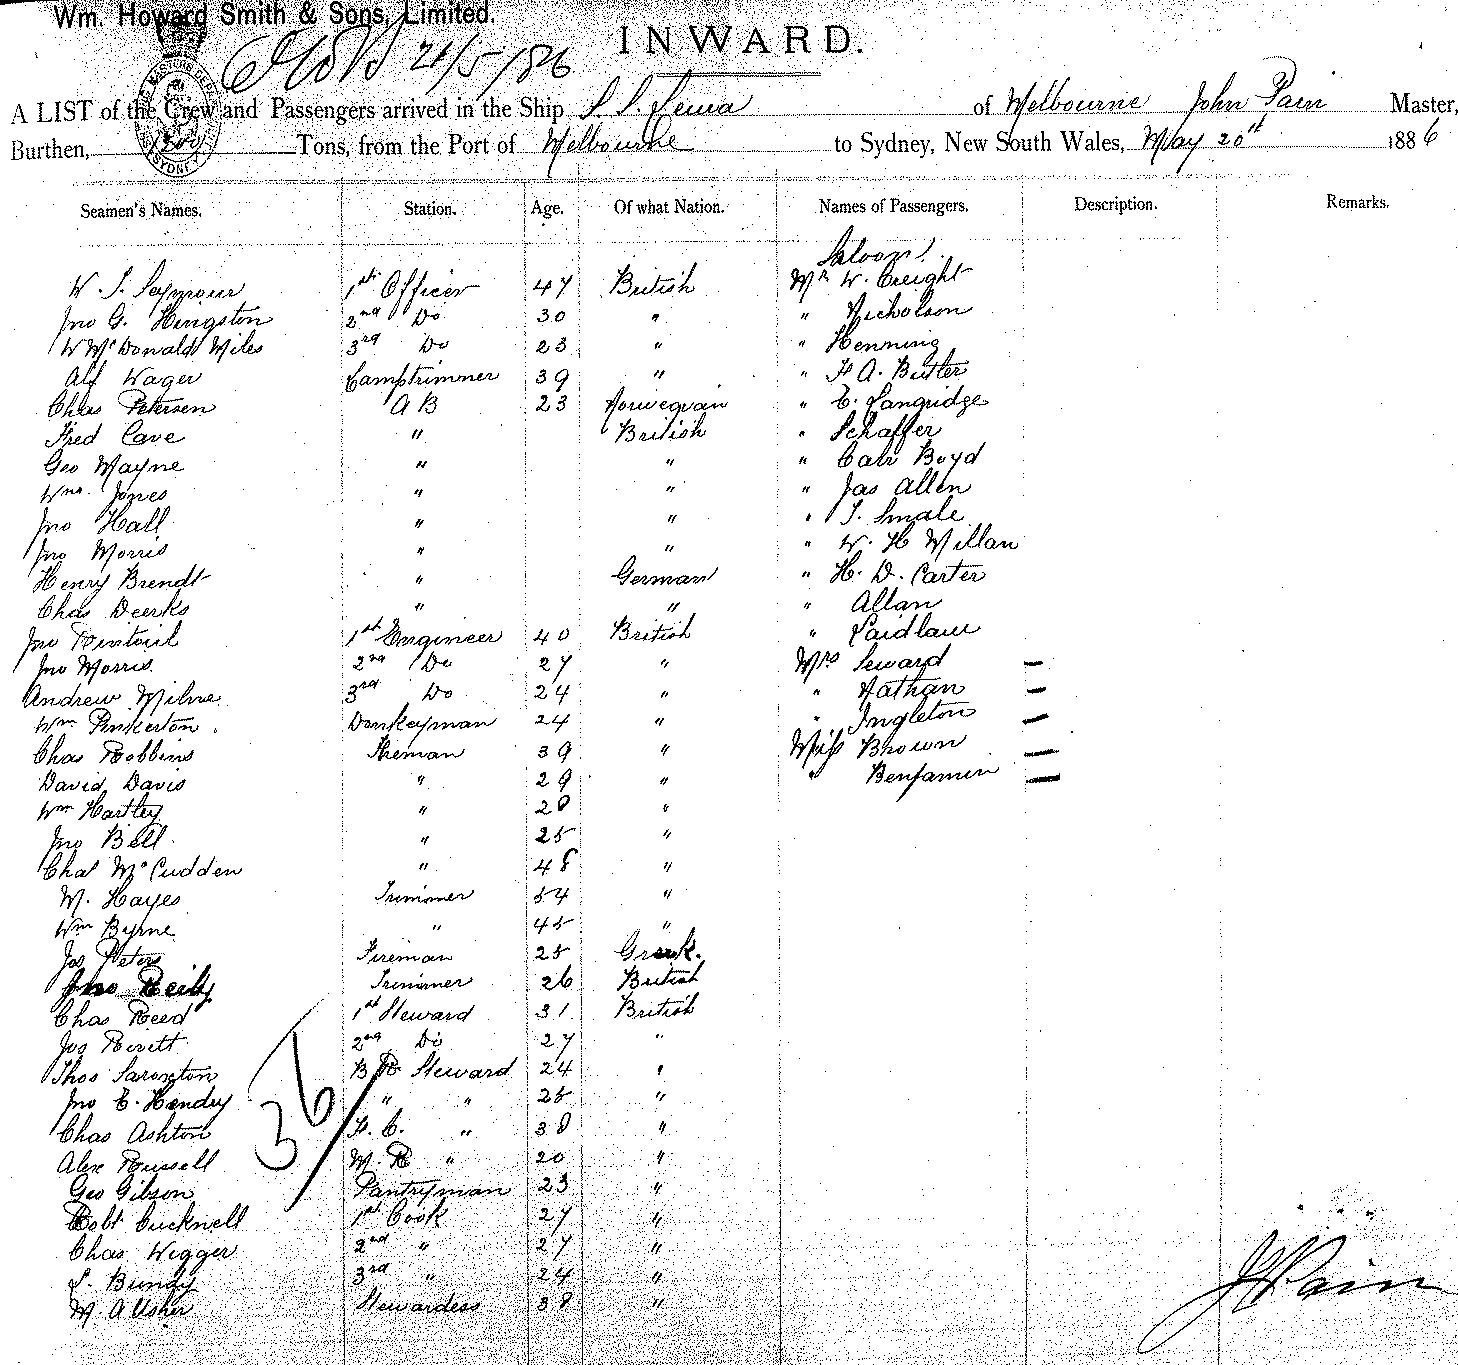 Wm. Howard Smith & Sons, Limited.
21/5/86
INWARD.
A LIST of the Crew and Passengers arrived in the Ship S. S. of Melbourne John Pain Master,
Burthen, Tons, from the Port of Melbourne to Sydney, New South Wales, May 20th 1886
Seamen's Names. Station. Age. Of what Nation. Names of Passengers. Description. Remarks.
Saloon.
W. S. Seymour 1st Officer 47 British Mr W. Creight
Jno G. Hingston 2nd Do 30 " " Nicholson
W McDonald Miles 3rd Do 23 " " Henning
Alf Wager Lamptrimmer 39 " " F A. Butler
Chas Petersen A B 23 Norwegian " E. Langridge
Fred Cave " British " Schaffer
Geo Wayne " " " Carr Boyd
Wm Jones " " " Jas Allen
Jno Hall " " " T. Smale
Jno Morris " " " W. H Millan
Henry Brendt " German " H. D. Carter
Chas Deerks " " " Allan
Jno Rintoul 1st Engineer 40 British " Laidlaw
Jno Morris 2nd Do 27 " Mrs Seward —
Andrew Milne 3rd Do 24 " " Nathan —
Wm Pinkerton Donkeyman 24 " " Ingleton —
Chas Robbins Fireman 39 " Miss Brown —
David Davis " 29 " " Benjamin —
Wm Hartley " 28 "
Jno Bell " 25 "
Chas McCudden " 48 "
M. Hayes Trimmer 54 "
Wm Byrne " 45 "
Jos Peters Fireman 25 Greek.
Jno Reily Trimmer 26 British
Chas Reed 1st Steward 31 British
Jos Rivett 2nd Do 27 "
Thos Saronton B R Steward 24 "
Jno E. Hendry " " 25 "
Chas Ashton F. C. " 38 "
Alex Russell M. R " 20 "
Geo Gibson Pantryman 23 "
Robt Cucknell 1st Cook 27 "
Chas Wigger 2nd " 27 "
S. Bundy 3rd " 24 "
M. A Usher Stewardess 38 "
36/
J Pain